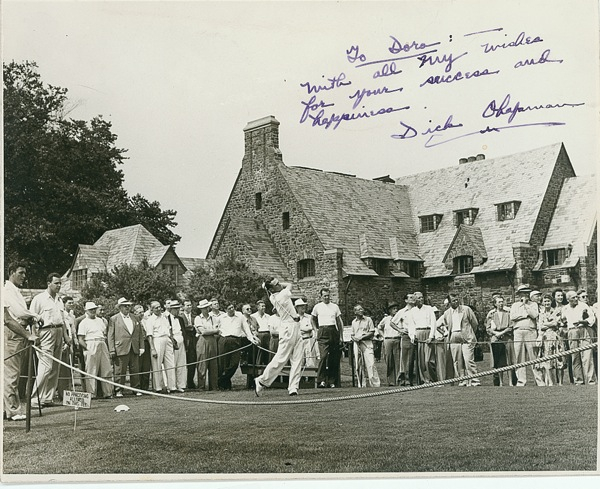 To Doro:
With all my wishes
for your success and
happiness.
Dick Chapman